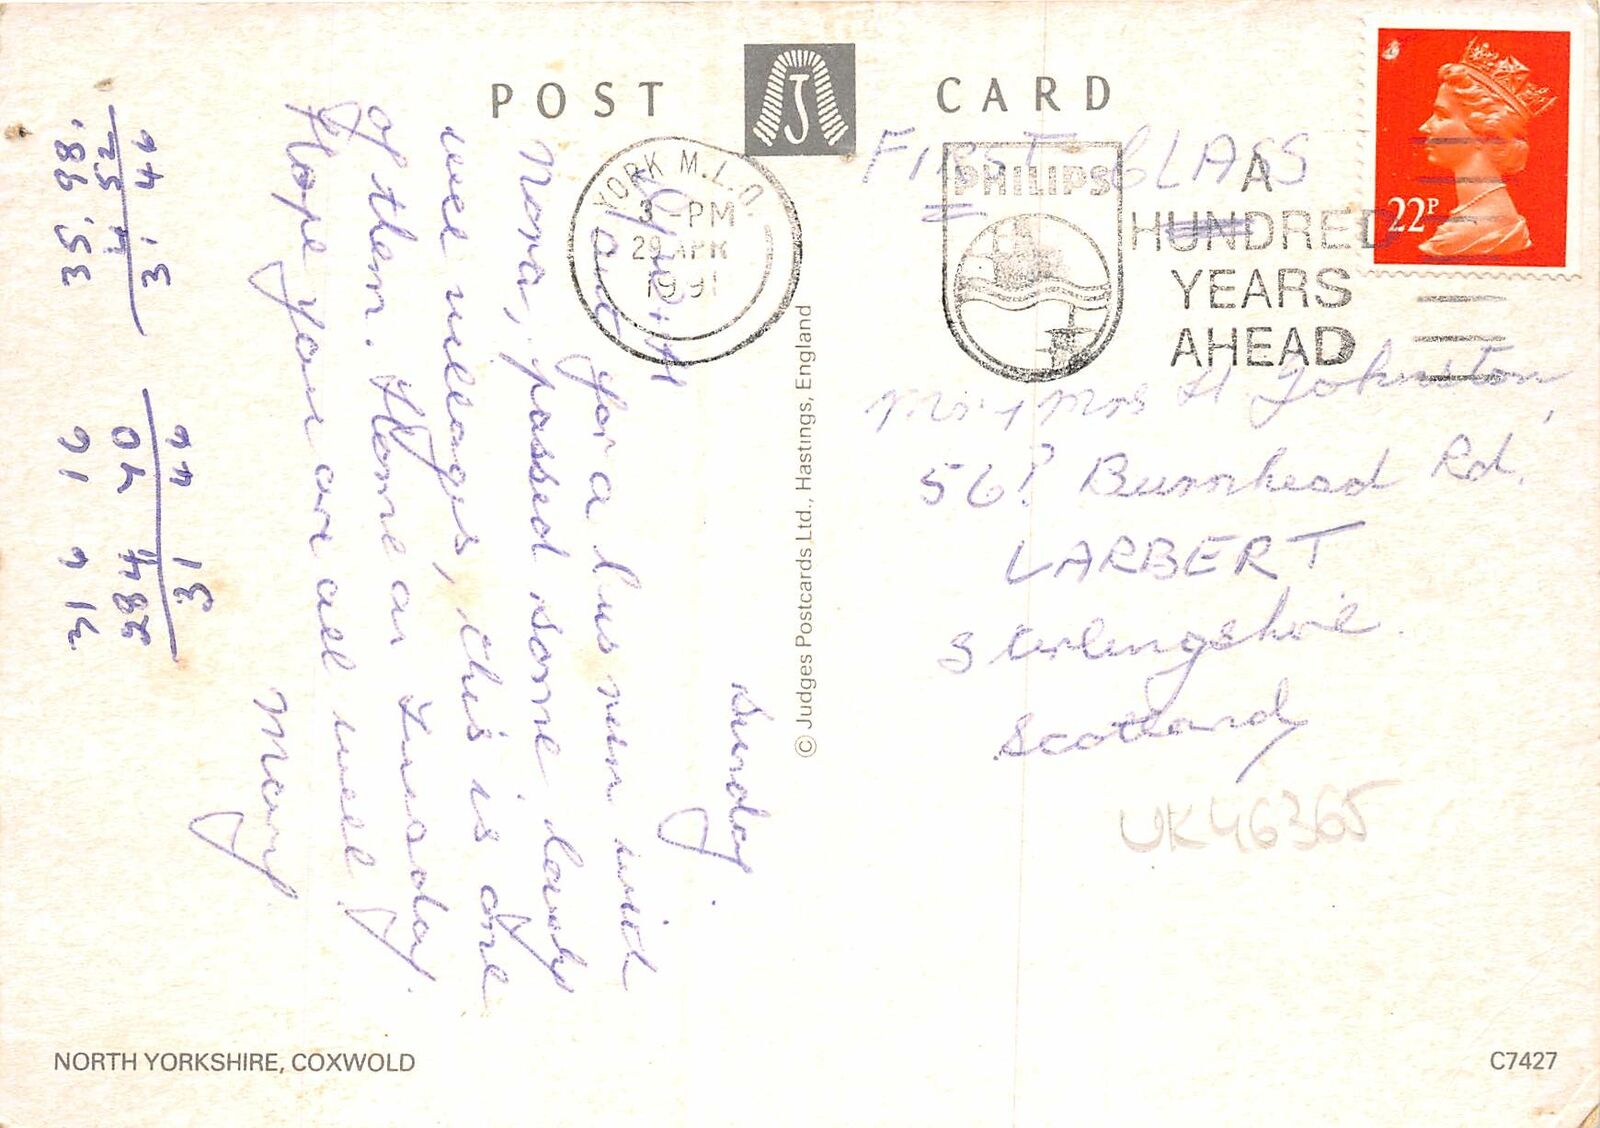 POST CARD
J
FIRST CLASS
YORK M.L.O.
3 -PM
29 APR
1991
PHILIPS
A
HUNDRED
YEARS
AHEAD
22P
Mr + Mrs H Johnston,
Burnhead Rd.
LARBERT
Stirlingshire.
Scotland
UK46365
Sunday.
for a bus run with
Nora, passed some lovely
wee villages, this is one
of them. Home on Tuesday.
Hope you are all well
Mary.
35.98.
4 52
3. 46
316 16
284 70
31 46
© Judges Postcards Ltd., Hastings, England
NORTH YORKSHIRE, COXWOLD
C7427